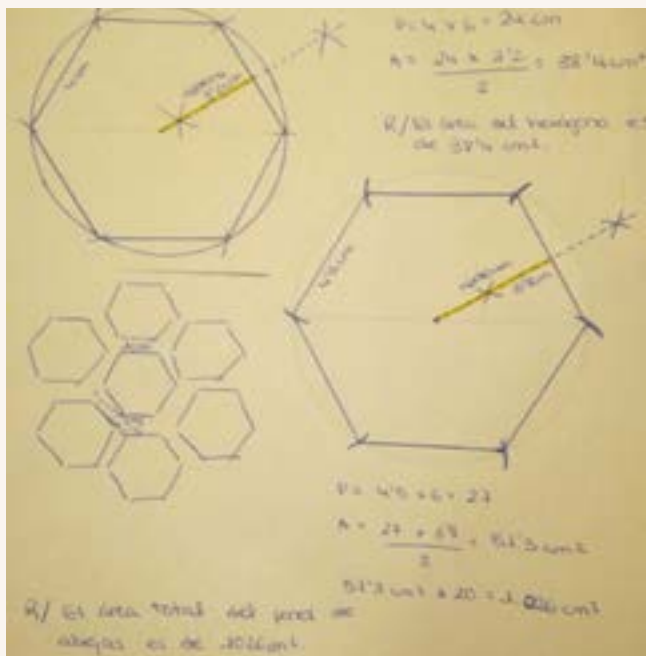 P = 4 x 6 = 24 cm
A = 24 x 3'2 / 2 = 38'4 cm²
4cm
apotema
R/ El área del hexágono es
de 38'4 cm².
4'5cm
apotema
3'8cm
P = 4'5 x 6 = 27
A = 27 x 3'8 / 2 = 51'3 cm²
51'3 cm² x 20 = 1.026 cm²
R/ El área total del panel de
abejas es de 1026cm².